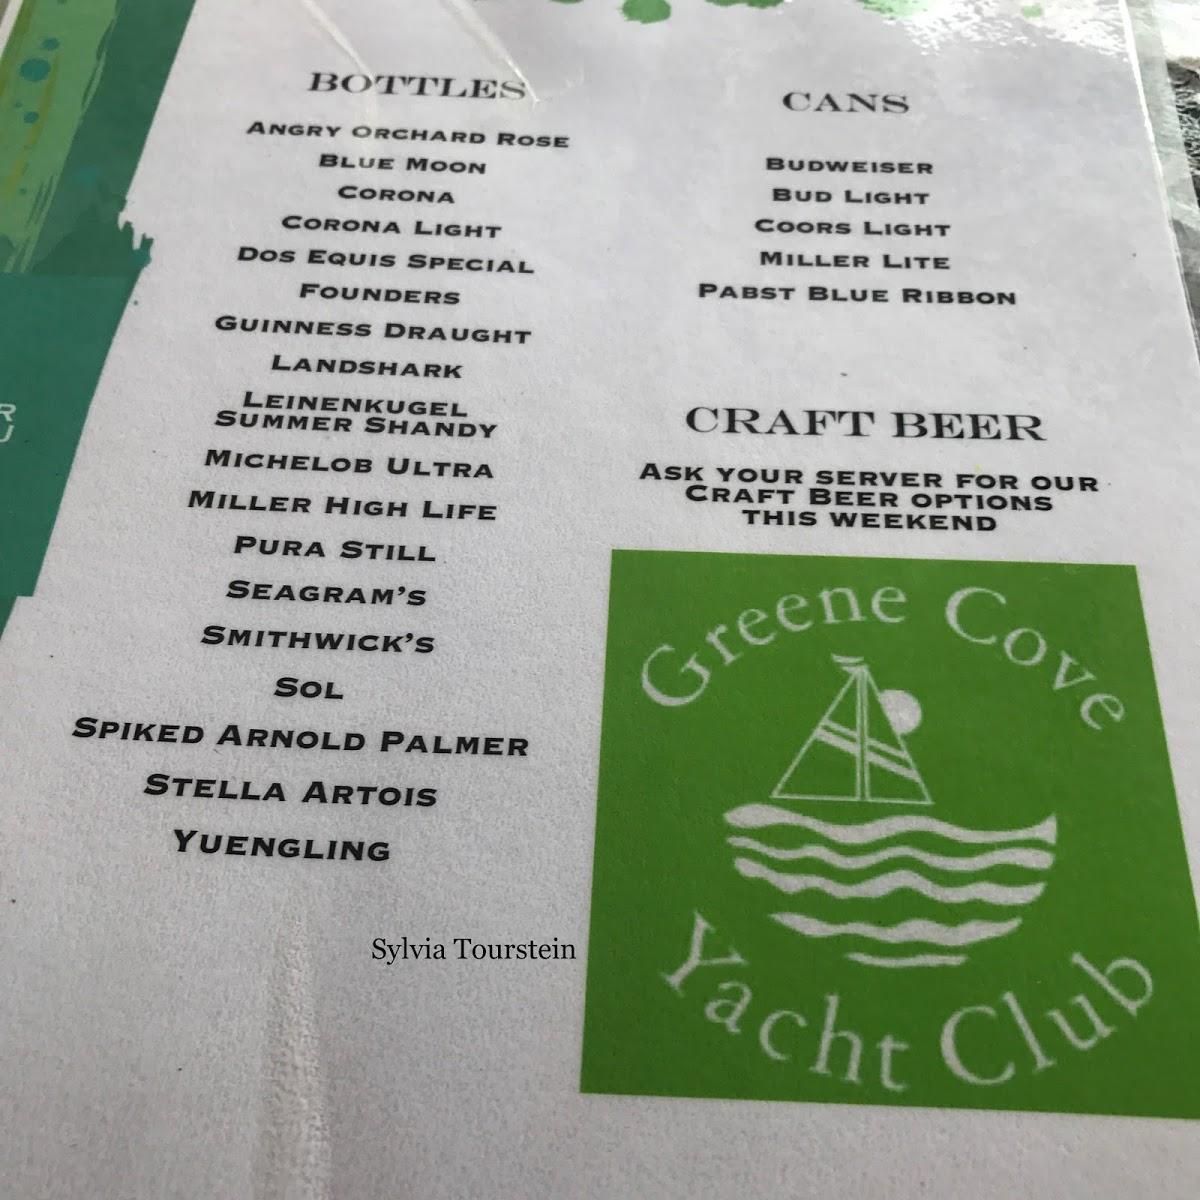 BOTTLES
ANGRY ORCHARD ROSE
BLUE MOON
CORONA
CORONA LIGHT
DOS EQUIS SPECIAL
FOUNDERS
GUINNESS DRAUGHT
LANDSHARK
LEINENKUGEL
SUMMER SHANDY
MICHELOB ULTRA
MILLER HIGH LIFE
PURA STILL
SEAGRAM'S
SMITHWICK'S
SOL
SPIKED ARNOLD PALMER
STELLA ARTOIS
YUENGLING
CANS
BUDWEISER
BUD LIGHT
COORS LIGHT
MILLER LITE
PABST BLUE RIBBON
CRAFT BEER
ASK YOUR SERVER FOR OUR
CRAFT BEER OPTIONS
THIS WEEKEND
Greene Cove
Yacht Club
Sylvia Tourstein